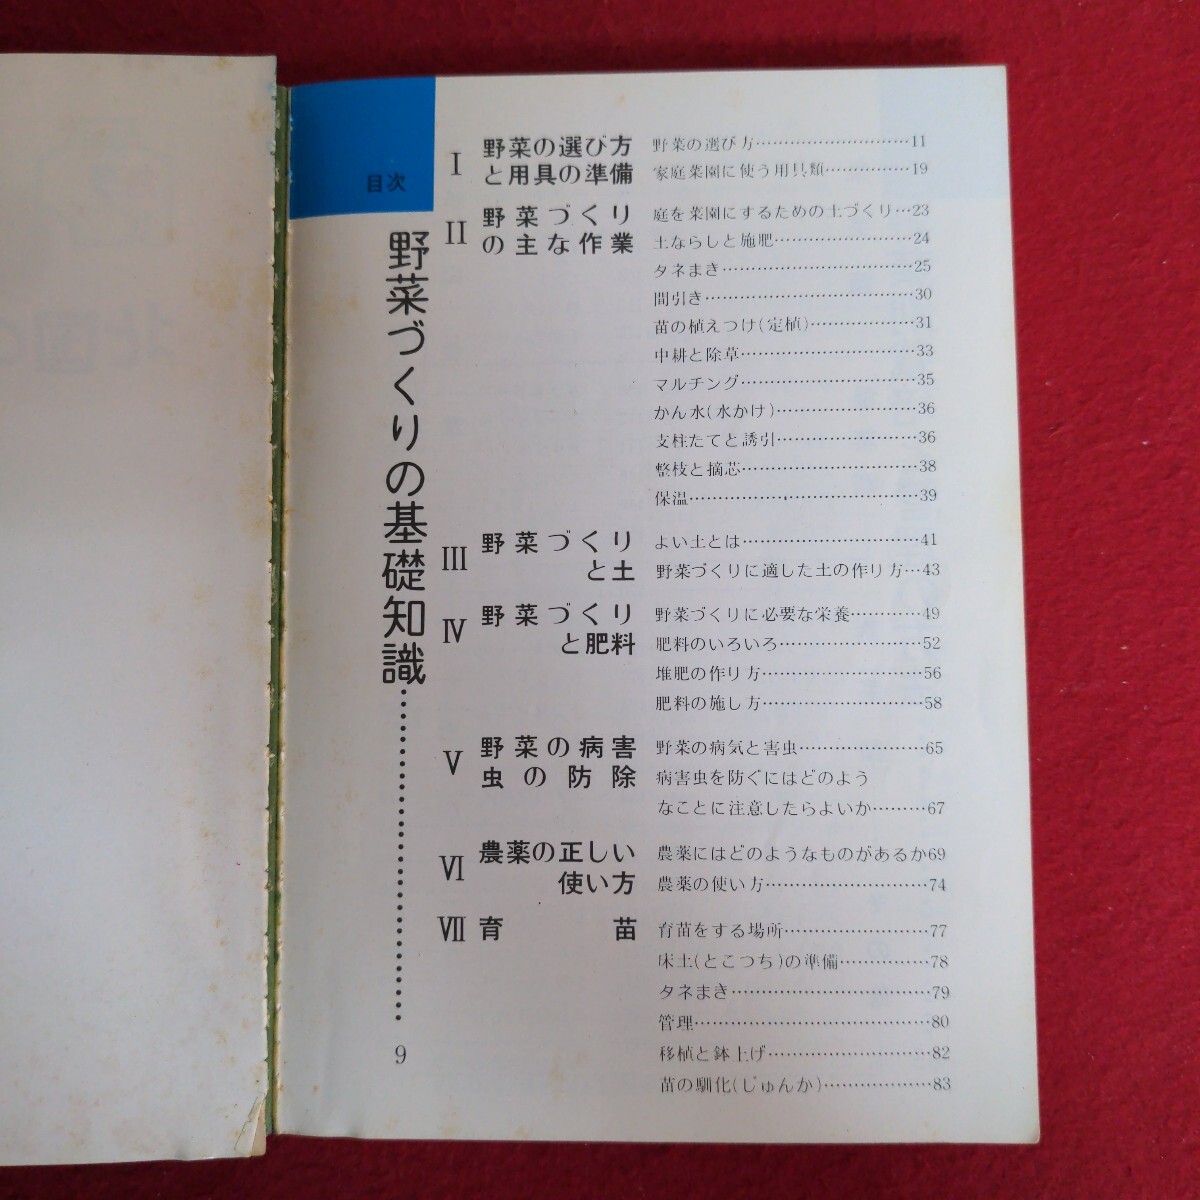 目次
野菜づくりの基礎知識……………………9
I 野菜の選び方
と用具の準備
野菜の選び方………………………11
家庭菜園に使う用具類……………19
II 野菜づくり
の主な作業
庭を菜園にするための土づくり…23
土ならしと施肥……………………24
タネまき……………………………25
間引き………………………………30
苗の植えつけ(定植)………………31
中耕と除草…………………………33
マルチング…………………………35
かん水(水かけ)……………………36
支柱たてと誘引……………………36
整枝と摘芯…………………………38
保温…………………………………39
III 野菜づくり
と土
よい土とは…………………………41
野菜づくりに適した土の作り方…43
IV 野菜づくり
と肥料
野菜づくりに必要な栄養…………49
肥料のいろいろ……………………52
堆肥の作り方………………………56
肥料の施し方………………………58
V 野菜の病害
虫の防除
野菜の病気と害虫…………………65
病害虫を防ぐにはどのよう
なことに注意したらよいか………67
VI 農薬の正しい
使い方
農薬にはどのようなものがあるか69
農薬の使い方………………………74
VII 育苗
育苗をする場所……………………77
床土(とこつち)の準備……………78
タネまき……………………………79
管理…………………………………80
移植と鉢上げ………………………82
苗の馴化(じゅんか)………………83